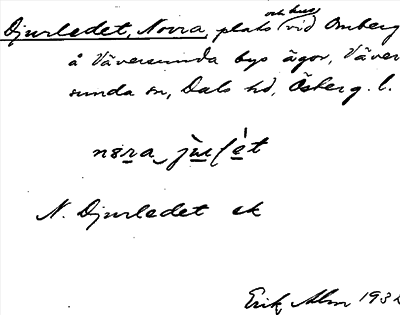 Djurledet, Norra, plats och hus vid Omberg
å Väversunda bys ägor, Väver
sunda sn, Dals hd, Österg. l.
N. Djurledet ek
Erik Alm 193